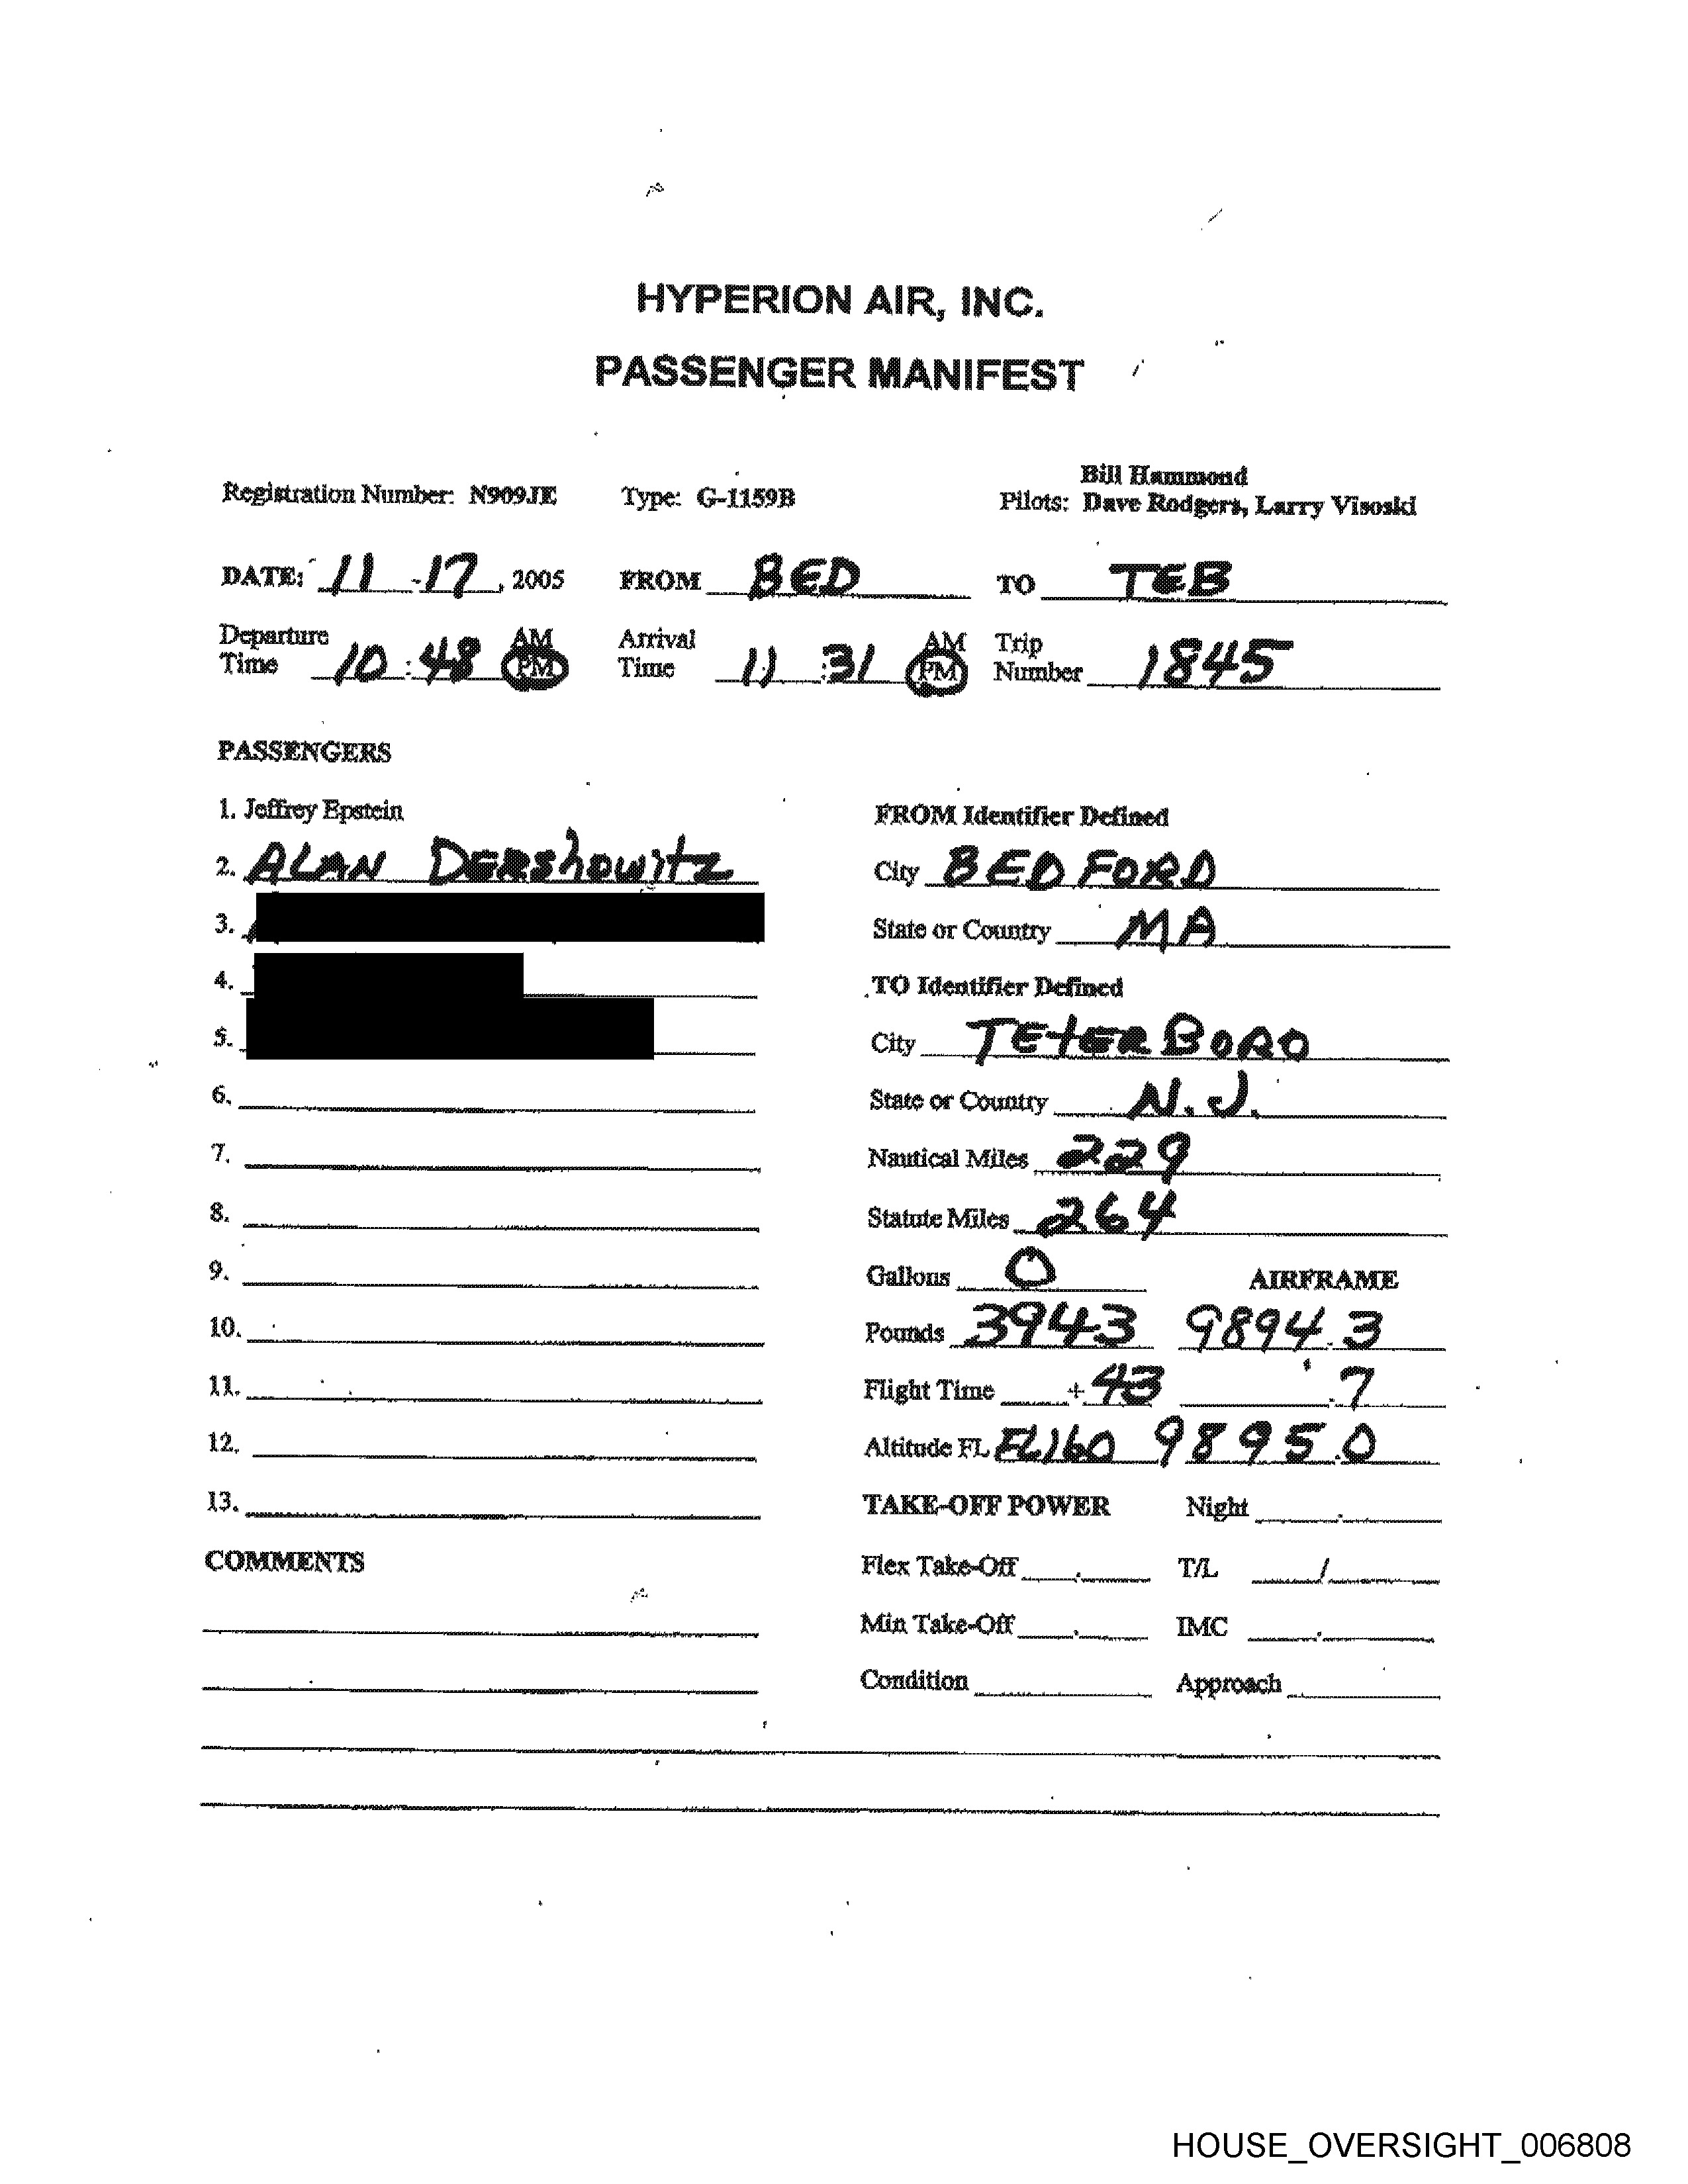 HYPERION AIR, INC.
PASSENGER MANIFEST
Bill Hammond
Registration Number: N909JE Type: G-1159B Pilots: Dave Rodgers, Larry Visoski
DATE: 11-17, 2005 FROM BED TO TEB
Departure Time 10:48 AM PM Arrival Time 11:31 AM PM Trip Number 1845
PASSENGERS
1. Jeffrey Epstein
2. ALAN DERShowitz
3.
4.
5.
6.
7.
8.
9.
10.
11.
12.
13.
COMMENTS
FROM Identifier Defined
City BEDFORD
State or Country MA
TO Identifier Defined
City TEtERBORO
State or Country N.J.
Nautical Miles 229
Statute Miles 264
Gallons 0 AIRFRAME
Pounds 3943 9894.3
Flight Time + 43 .7
Altitude FL FL160 9895.0
TAKE-OFF POWER Night
Flex Take-Off T/L /
Min Take-Off IMC
Condition Approach
HOUSE_OVERSIGHT_006808